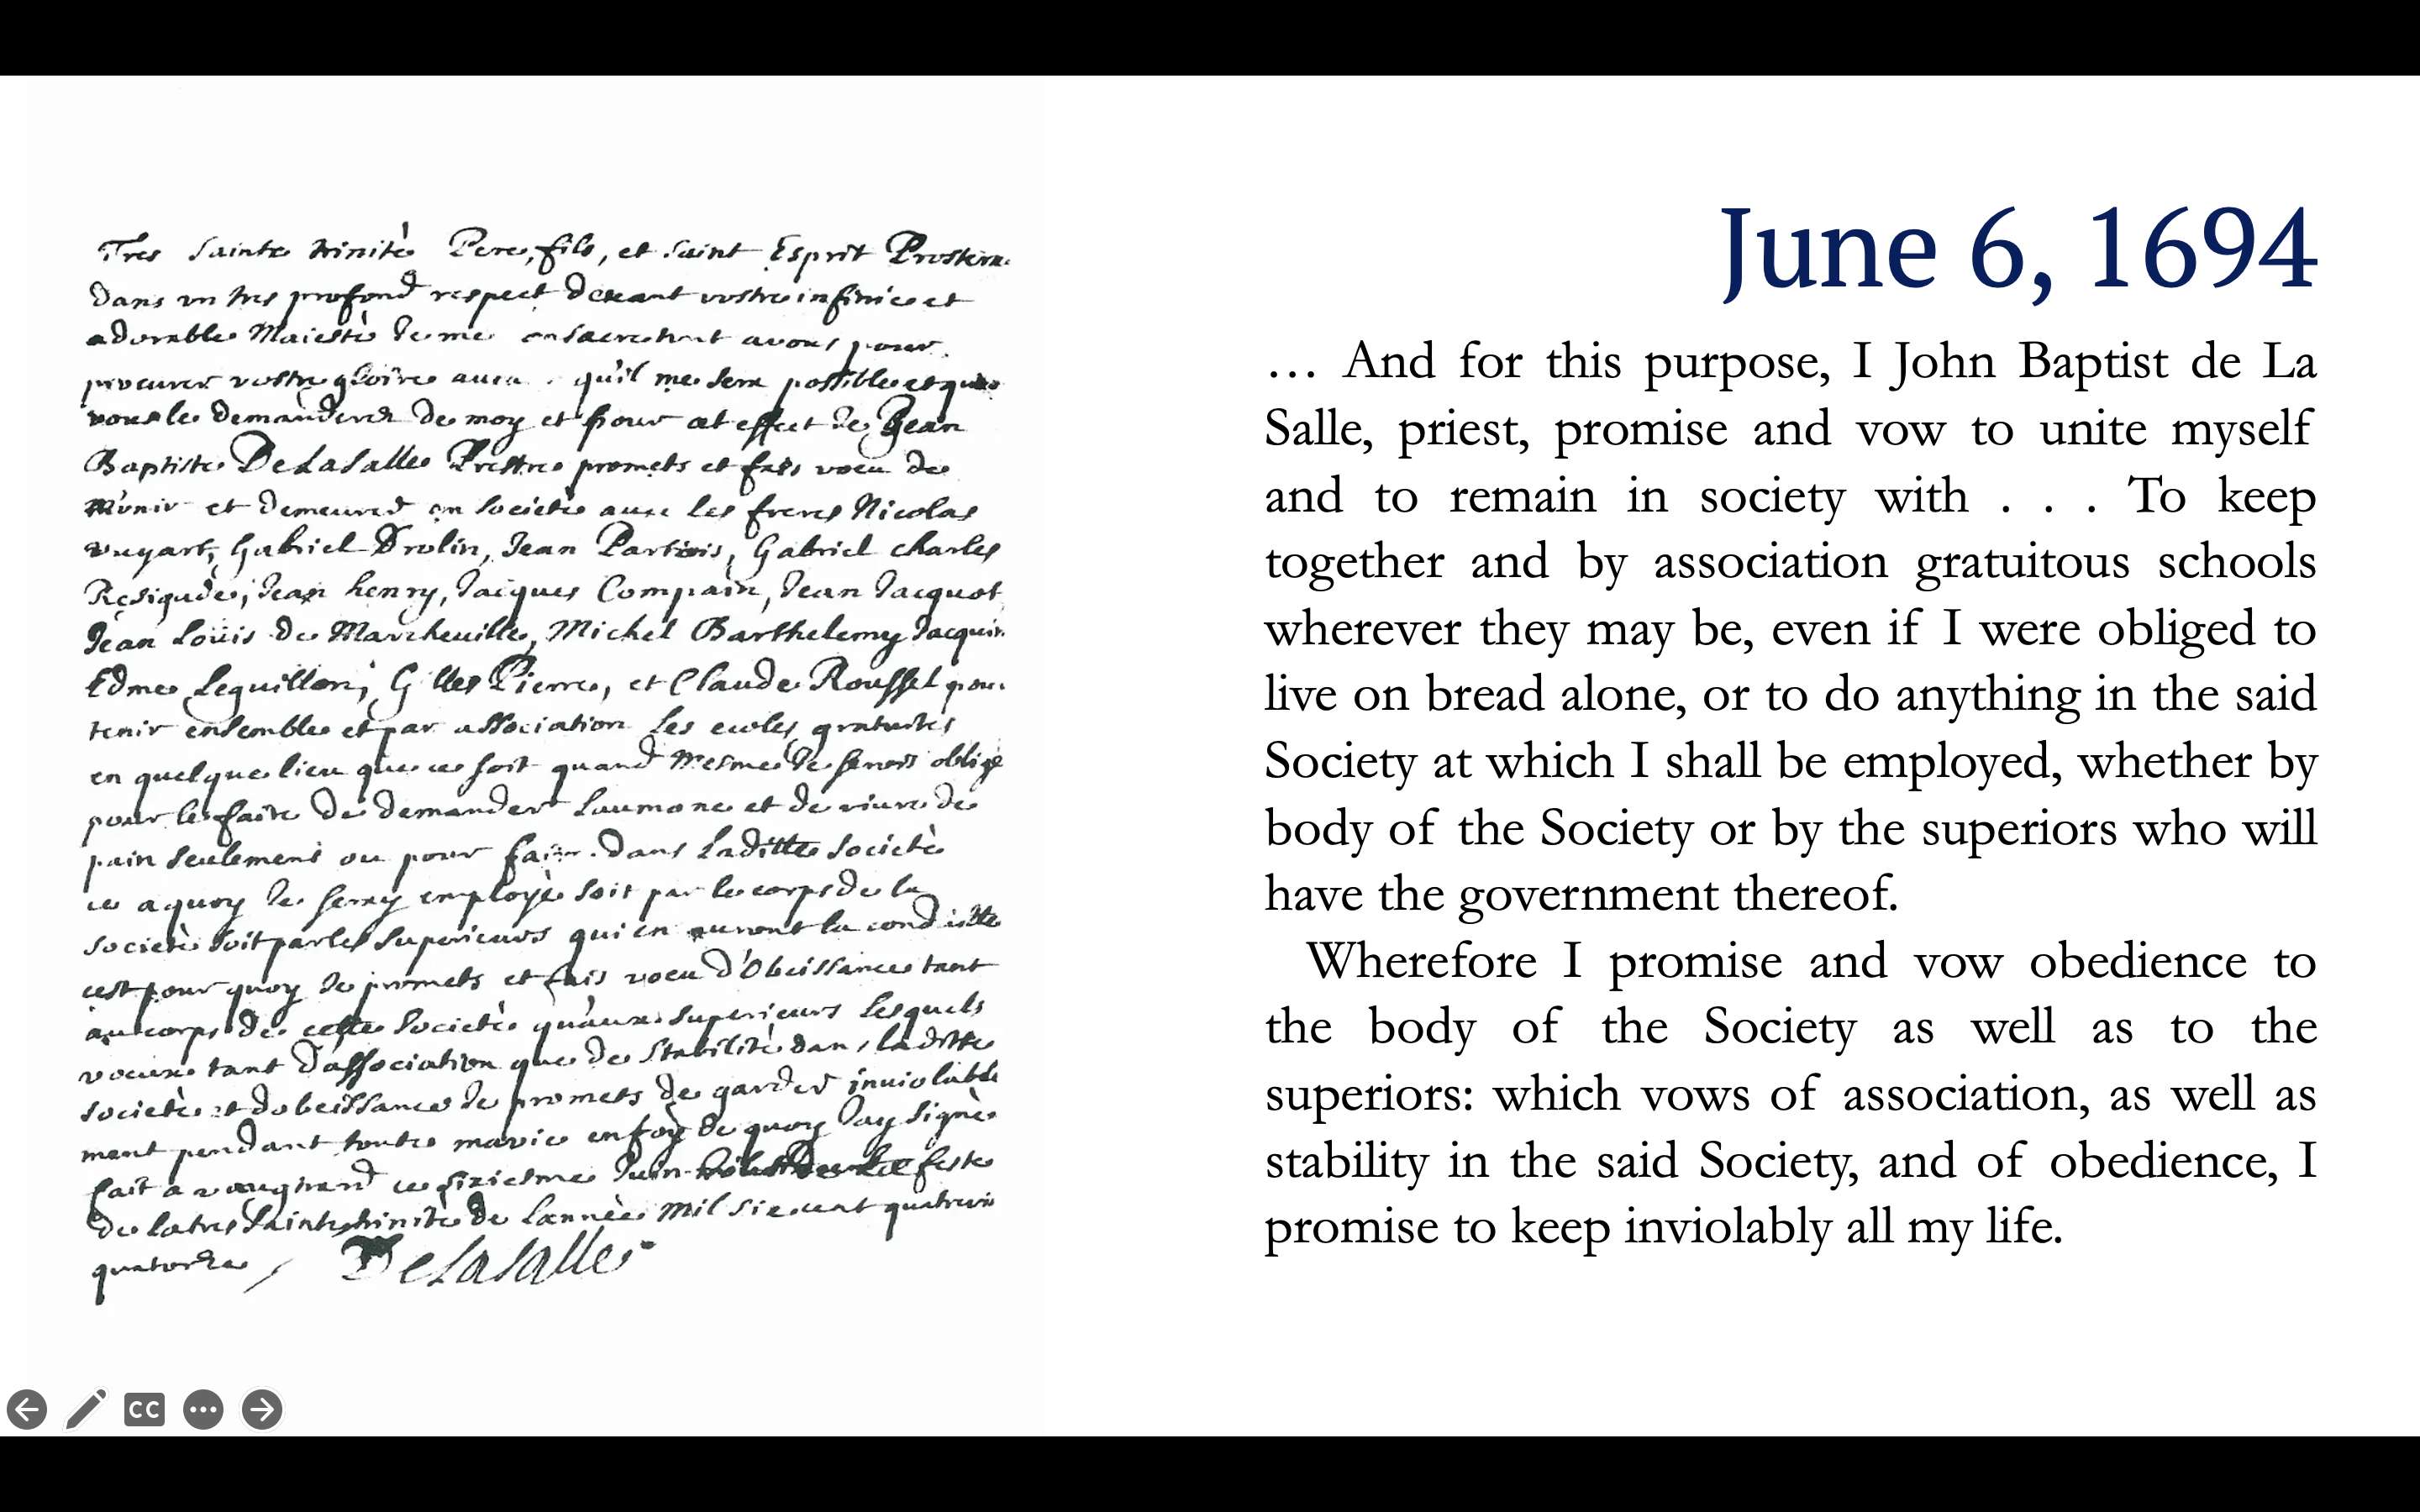 Tres Sainte trinité Pere, fils, et Saint Esprit Prostern
dans un tres profond respect devant vostre infinie et
adorable Maiesté Je me consacre tout a vous pour
procurer vostre gloire autant qu'il me sera possible et que
vous le demanderez de moy et pour cet effect Je Jean
Baptiste De La Salle Prestre promets et fais voeu de
m'unir et demeurer en Societé avec les freres Nicolas
vuyart, Gabriel Drolin, Jean Partois, Gabriel charles
Rasigade, Jean henry, Jacques Compain, Jean Jacquot,
Jean Louis de Marcheuille, Michel Barthelemy Jacquin
Edme Leguillon, Gilles Pierre, et Claude Roussel pour
tenir ensemble et par association les ecoles gratuites
en quelque lieu que ce soit quand mesme Je serois obligé
pour le faire de demander laumone et de viure de
pain seulement ou pour faire dans laditte Societé
ce a quoy Je seray employé soit par le corps de la
Societé soit par les Superieurs qui en auront la conduitte
cest pour quoy Je promets et fais voeu d'Obeissance tant
au corps de cette Societé qu'aux Superieurs Lesquels
voeux tant d'association que de Stabilité dans laditte
Societé et dobeissance Je promets de garder inuiolable
ment pendant toute ma vie en foy de quoy Jay Signé
fait a vaugirard ce sixiesme Juin feste
de la tres Sainte trinité de Lannée Mil six cent quatrevin
quatorze DeLaSalle
June 6, 1694
… And for this purpose, I John Baptist de La
Salle, priest, promise and vow to unite myself
and to remain in society with . . . To keep
together and by association gratuitous schools
wherever they may be, even if I were obliged to
live on bread alone, or to do anything in the said
Society at which I shall be employed, whether by
body of the Society or by the superiors who will
have the government thereof.
Wherefore I promise and vow obedience to
the body of the Society as well as to the
superiors: which vows of association, as well as
stability in the said Society, and of obedience, I
promise to keep inviolably all my life.
CC